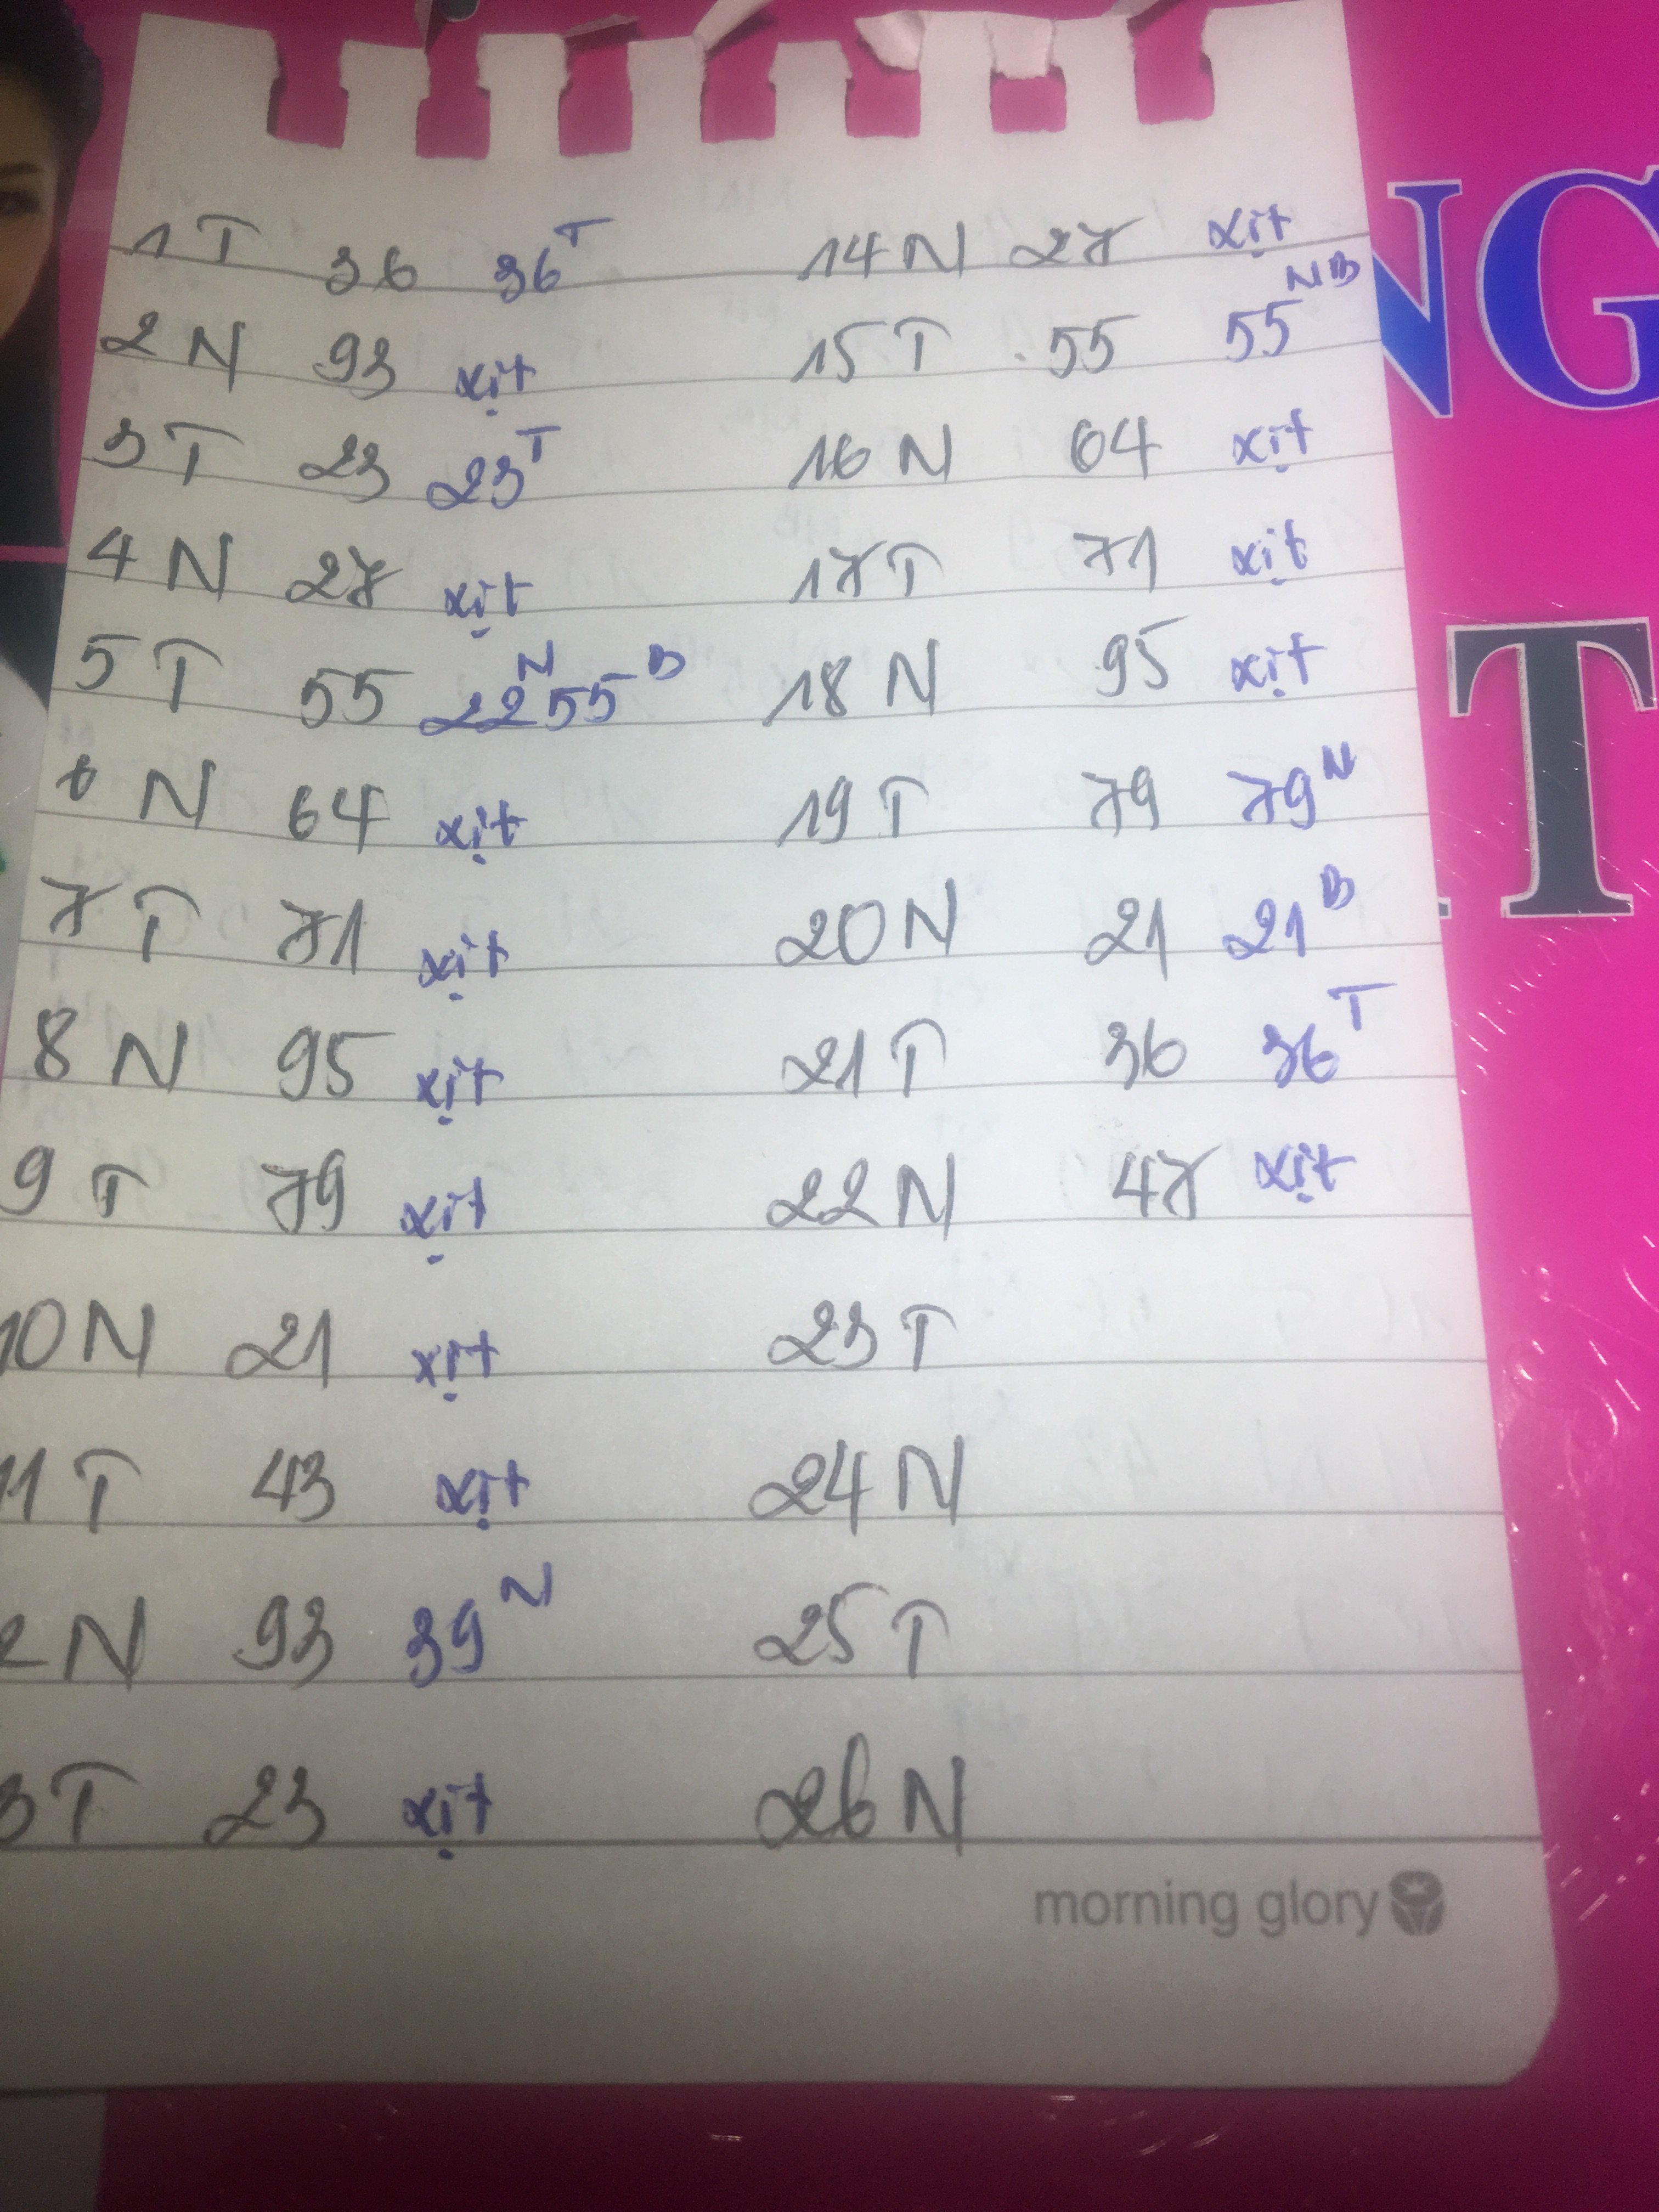 1 T 36 36ᵀ
2 N 93 xịt
3 T 23 23ᵀ
4 N 27 xịt
5 T 55 22ᴺ 55ᴮ
6 N 64 xịt
7 T 71 xịt
8 N 95 xịt
9 T 79 xịt
10 N 21 xịt
11 T 43 xịt
2 N 93 39ᴺ
3 T 23 xịt
14 N 27 xịt
15 T 55 55ᴺᴮ
16 N 64 xịt
17 T 71 xịt
18 N 95 xịt
19 T 79 79ᴺ
20 N 21 21ᴮ
21 T 36 36ᵀ
22 N 47 xịt
23 T
24 N
25 T
26 N
morning glory
NG
T